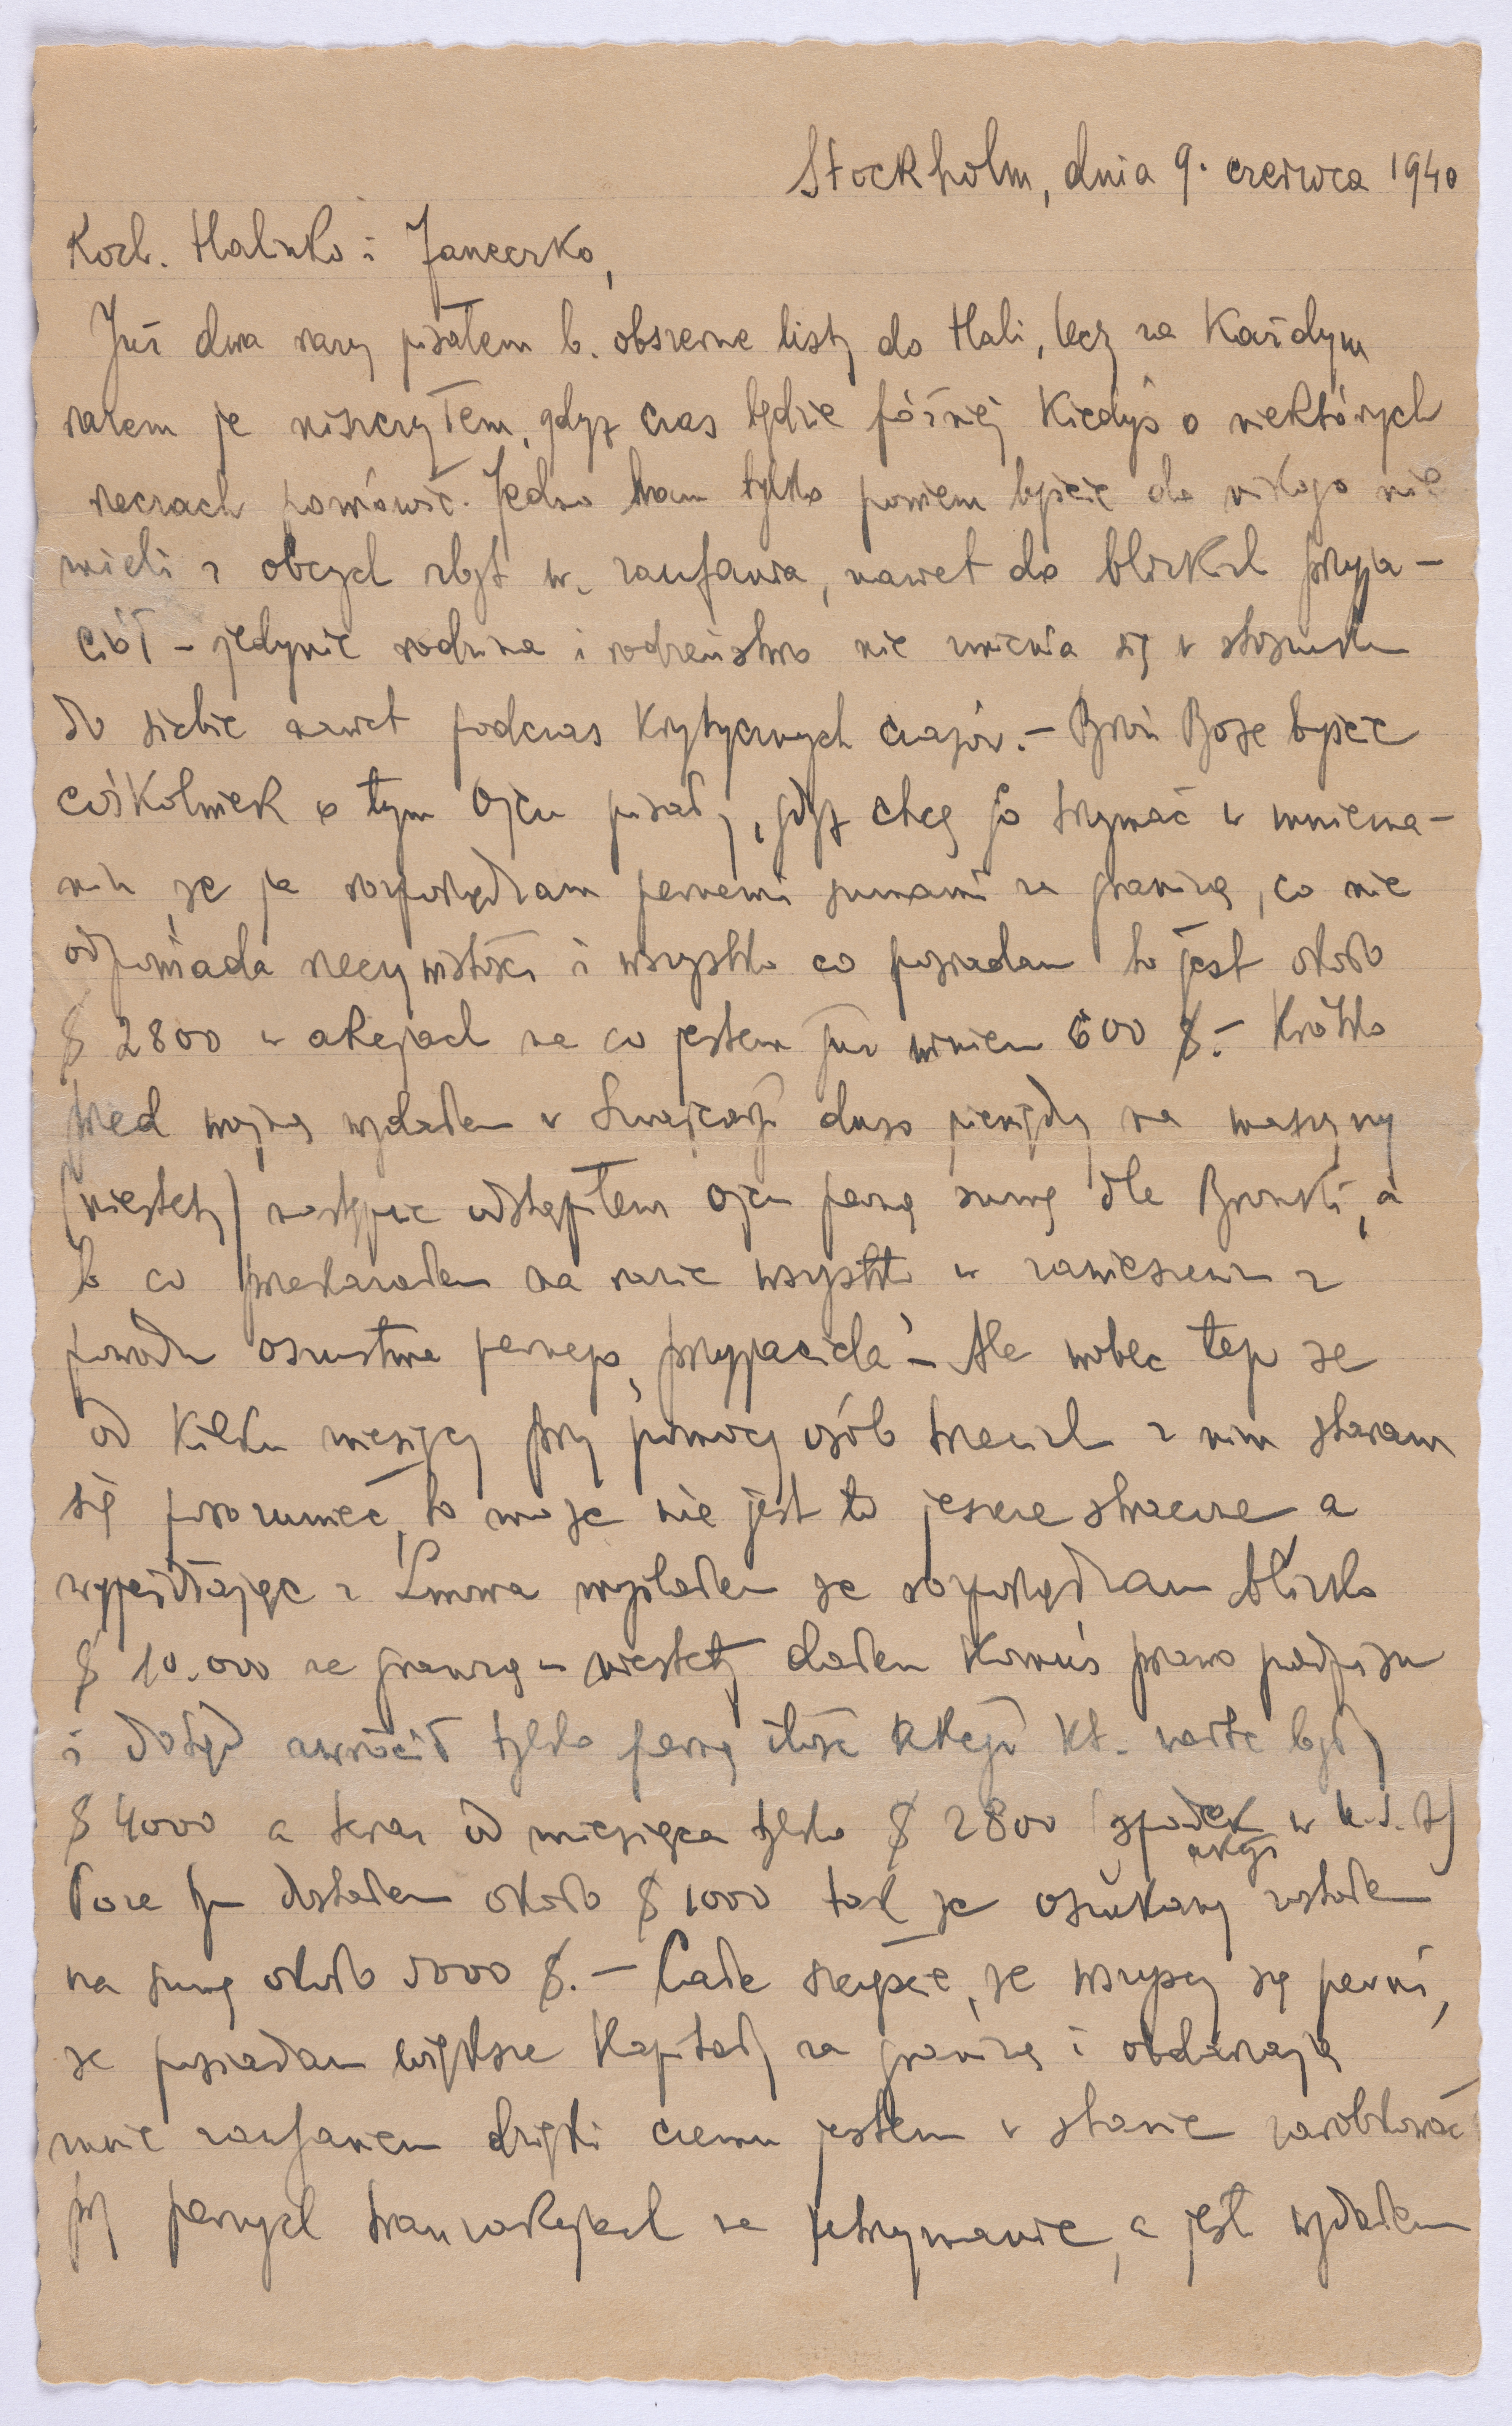 Stockholm, dnia 9. czerwca 1940
Koch. Halinko i Janeczko,
Już dwa razy pisałem b. obszerne listy do Hali, lecz za Każdym
razem je niszczyłem, gdyż czas będzie później Kiedyś o niektórych
rzeczach pomówić. Jedno Wam tylko powiem byście do nikogo nie
mieli z obcych zbyt w. zaufania, nawet do bliskich przyja-
ciół - jedynie rodzina i rodzeństwo nie zmienia się w stosunku
do siebie nawet podczas Krytycznych czasów. - Broń Boże byście
cośKolwiek o tym Ojcu pisały, gdyż chcę go trzymać w mniema-
niu, że ja rozporządzam pewnemi sumami za granicą, co nie
odpowiada rzeczywistości i wszystko co posiadam to jest około
$ 2800 w akcjach na co jestem już winien 600 $. - Krótko
przed wojną wydałem w Szwajcarji dużo pieniędzy na maszyny
(niestety) następnie odstąpiłem Ojcu pewną sumę dla Bronki, a
to co przekazałem na razie wszystko w zawieszeniu z
powodu oszustwa pewnego "przyjaciela" - Ale wobec tego że
od Kilku miesięcy przy pomocy osób trzecich z nim staram
się porozumieć, to może nie jest to jeszcze stracone, a
wyjeżdżając z Lwowa myślałem że rozporządzam blisko
$ 10.000 za granicą - niestety dałem Komuś prawo podpisu
i dotąd zwrócił tylko pewną ilość akcji Kt. warte były
$ 4000 a teraz od miesiąca tylko $ 2800 (spadek akcji w U.S.A)
Poza tym dostałem około $ 1000 tak że oszukany zostałem
na sumę około 5000 $. - Całe szczęście, że wszyscy są pewni,
że posiadam większe Kapitały za granicą i obdarzają
mnie zaufaniem dzięki czemu jestem w stanie zarobkować
przy pewnych tranzakcjach na utrzymanie, a jeśli wydałem